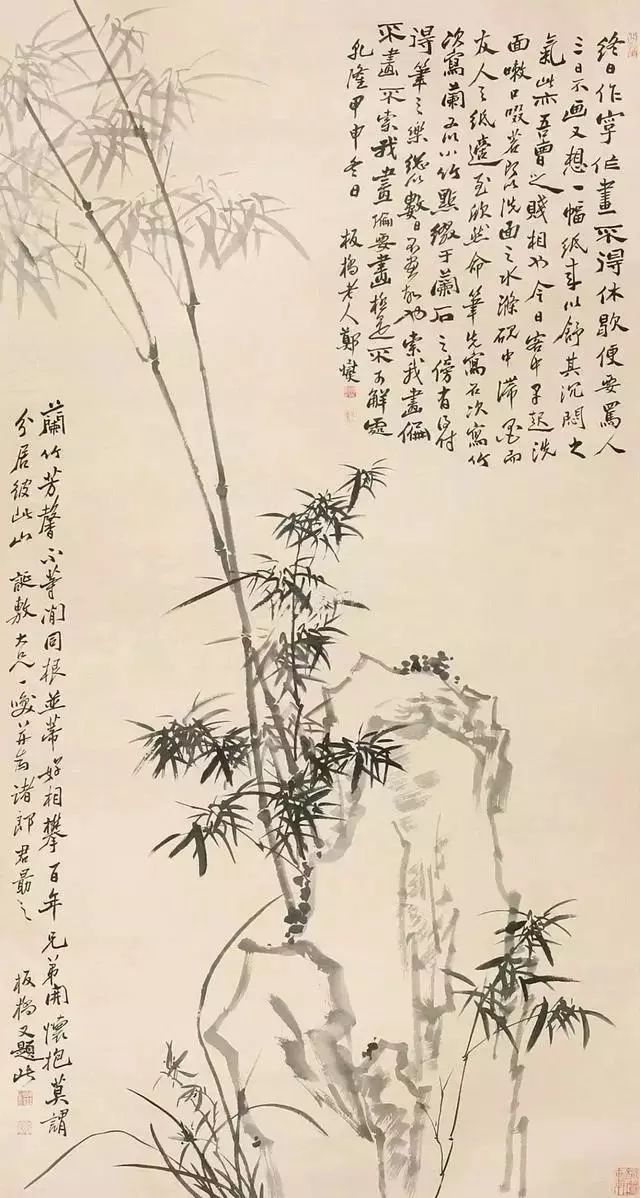 終日作字作畫不得休歇便要罵人
三日不画又想一幅紙來以舒其沉悶之
氣此亦吾曹之賤相也今日客中早起洗
面嗽口啜茗即以洗面之水滌硯中滯墨而
友人之紙適至欣然命筆先寫石次寫竹
次寫蘭又以小竹點綴于蘭石之傍有
得筆之樂縂以數日不畫故也索我畫偏
不畫不索我畫偏要畫極是不可解處
乾隆甲申冬日 板橋老人鄭燮
蘭竹芳馨不等閒同根並蒂好相攀百年兄弟開懷抱莫謂
分居彼此山 誕敷大兄一咲并 諸郎君勗之 板橋又題此